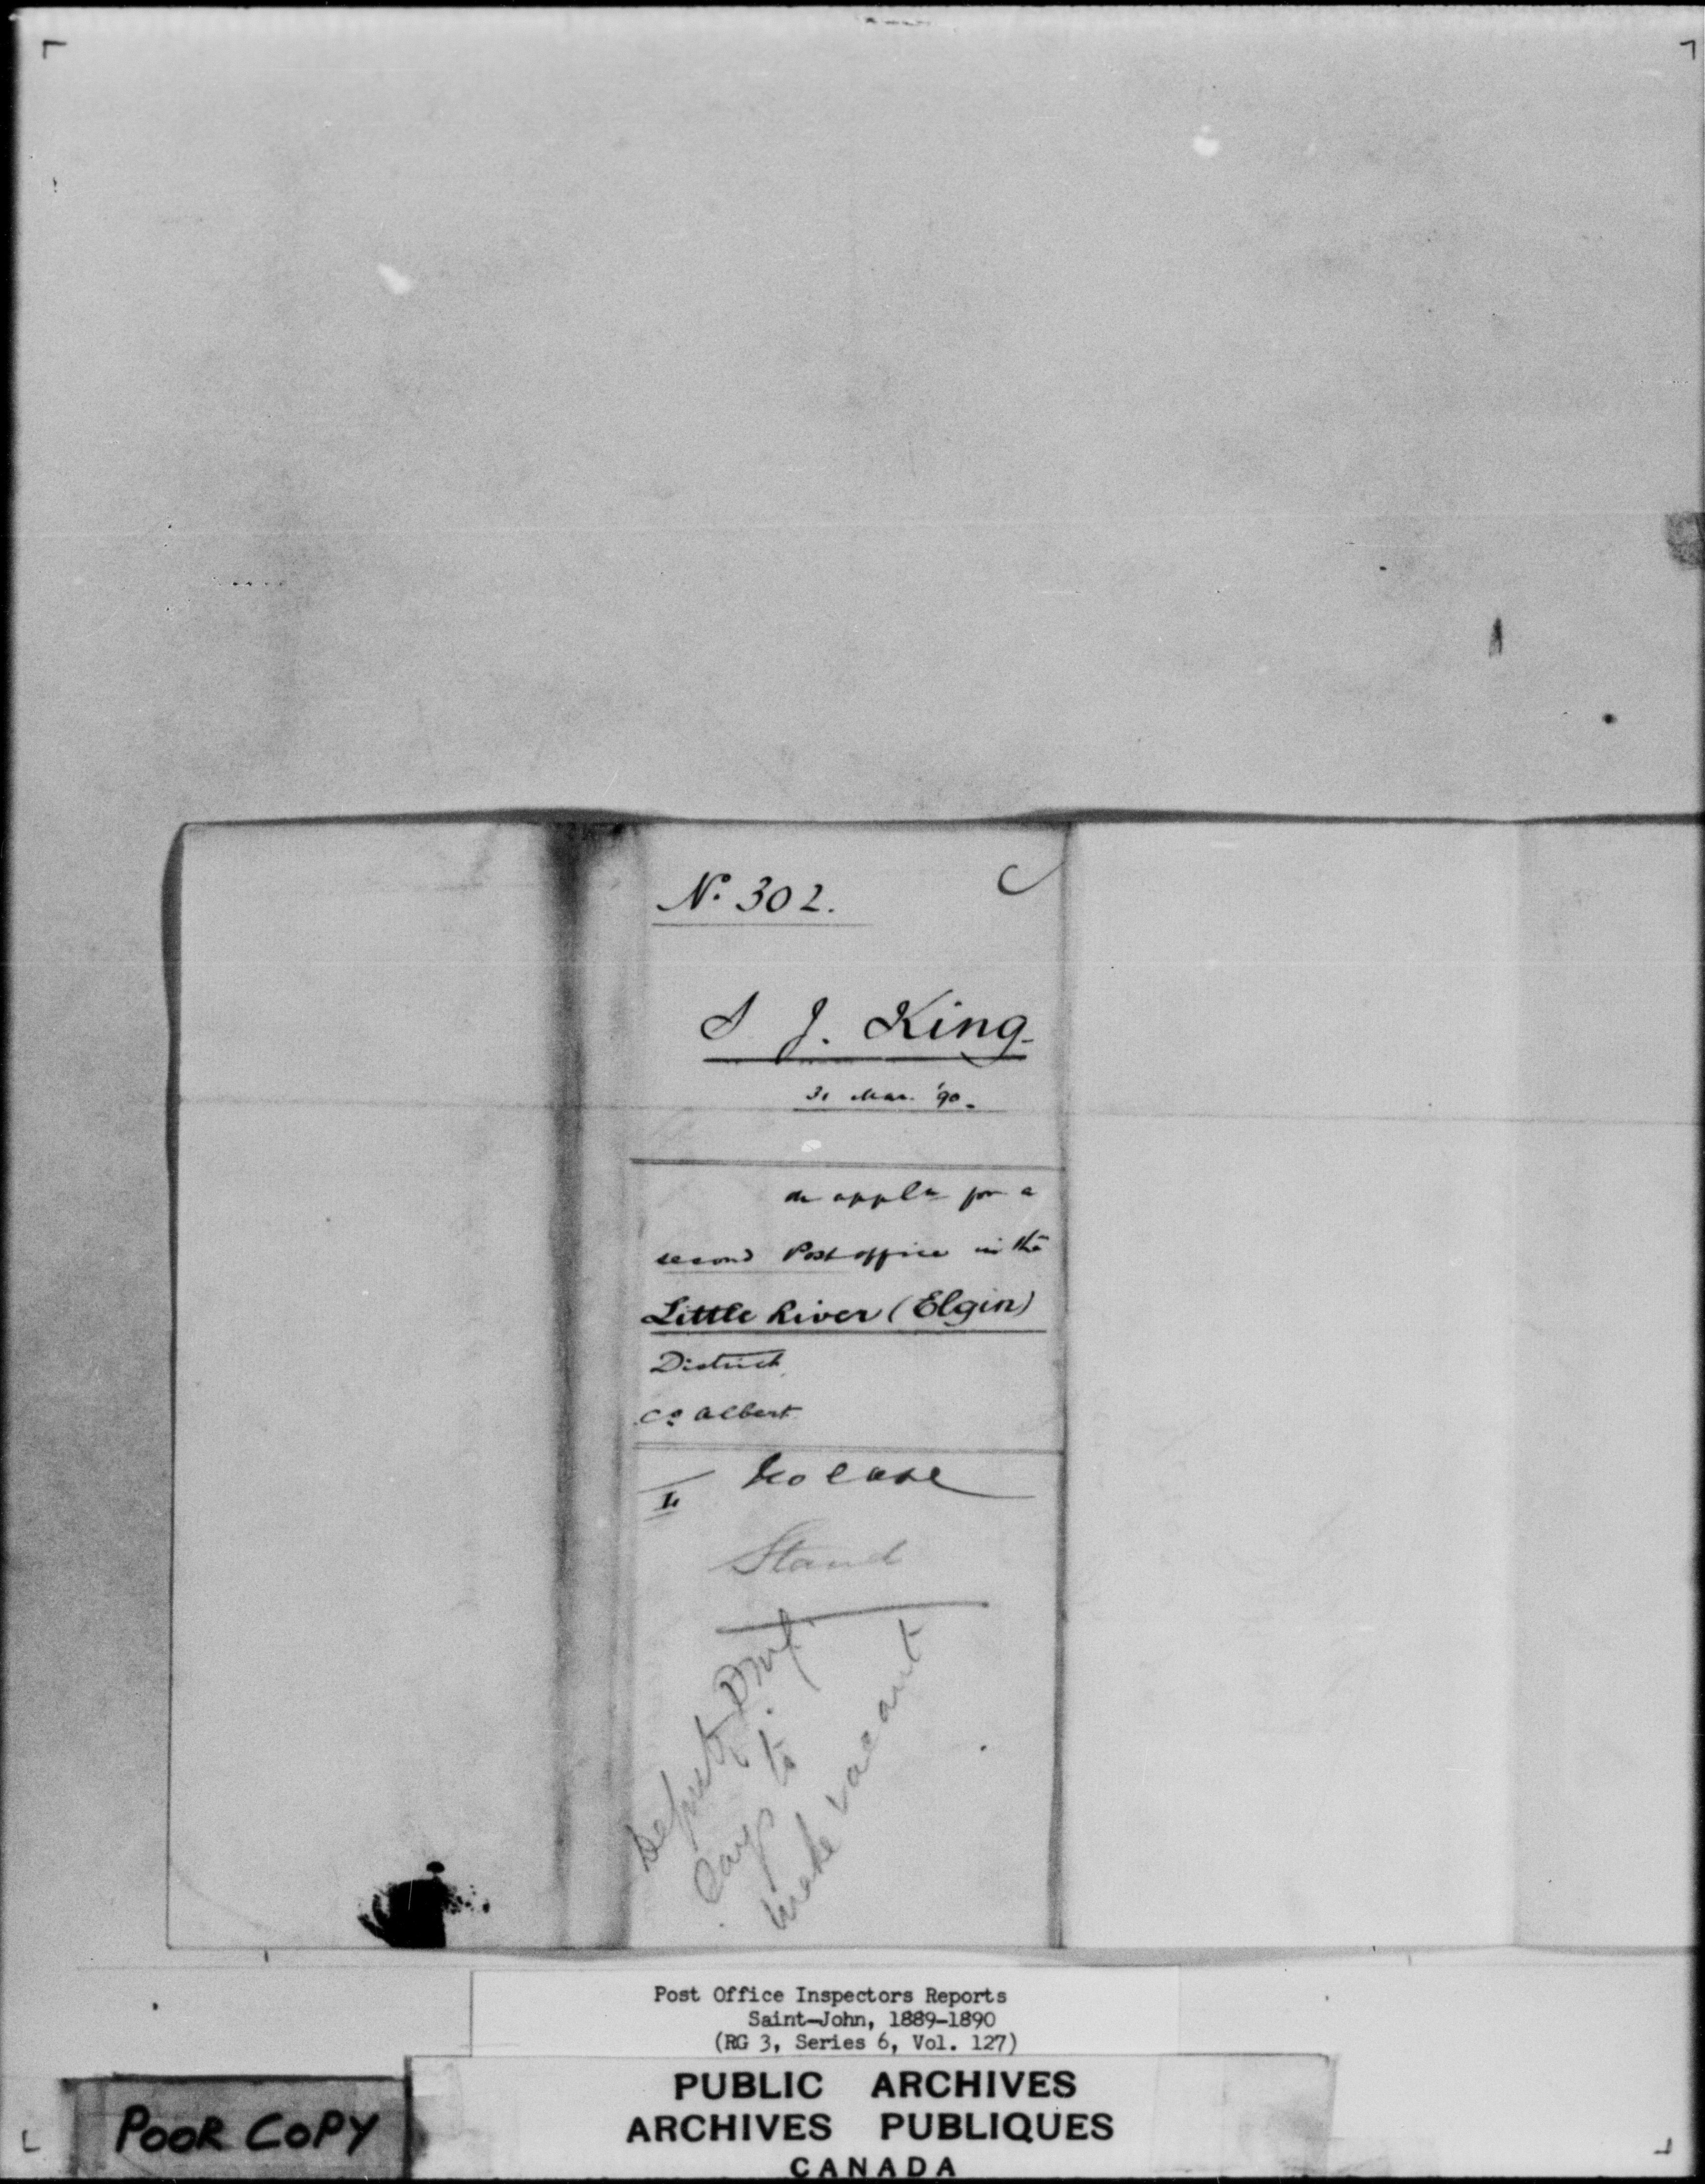 No. 302.
S J. King
31 Mar. '90.
on appln for a
second Post office in the
Little River (Elgin)
District
Co Albert
No case
Stand
to
make vacant
Post Office Inspectors Reports
Saint-John, 1889-1890
(RG 3, Series 6, Vol. 127)
PUBLIC ARCHIVES
ARCHIVES PUBLIQUES
CANADA
POOR COPY